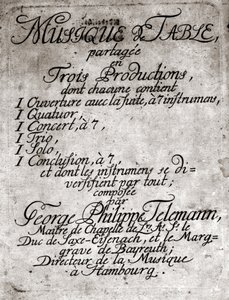 MUSIQUE DE TABLE,
partagée
en
Trois Productions,
dont chacune contient
I Ouverture avec la suite, à 7 instrumens,
I Quatuor,
I Concert, à 7,
I Trio,
I Solo,
I Conclusion, à 7,
et dont les instrumens se di=
versifient par tout;
composée
par
George Philippe Telemann,
Maitre de Chapelle de L.L. A.A. S.S. le
Duc de Saxe-Eisenach, et le Marg=
grave de Bayreuth;
Directeur de la Musique
à Hambourg.